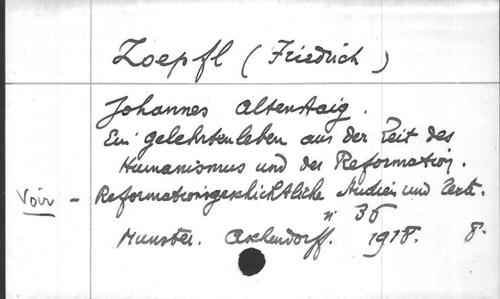 Zoepfl (Friedrich)
Johannes Altenstaig.
Ein gelehrtenleben aus der Zeit des
Humanismus und der Reformation.
Voir - Reformationsgeschichtliche Studien und Texte.
n° 36
Munster. Aschendorff. 1918. 8.